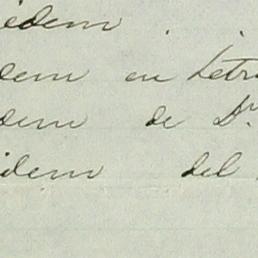 idem
idem en Letra
idem de Dn
idem del